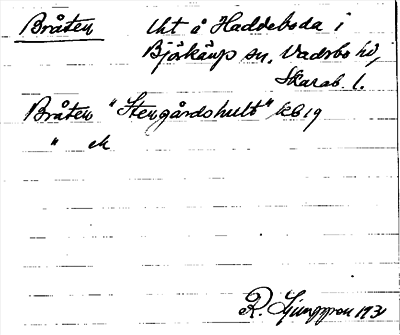 Bråten tht å Haddeboda i
Björkäng sn, Vadsbo hd,
Skarab. l.
Bråten "Stengårdshult" kb 19
" ek
R. Ljunggren 1931